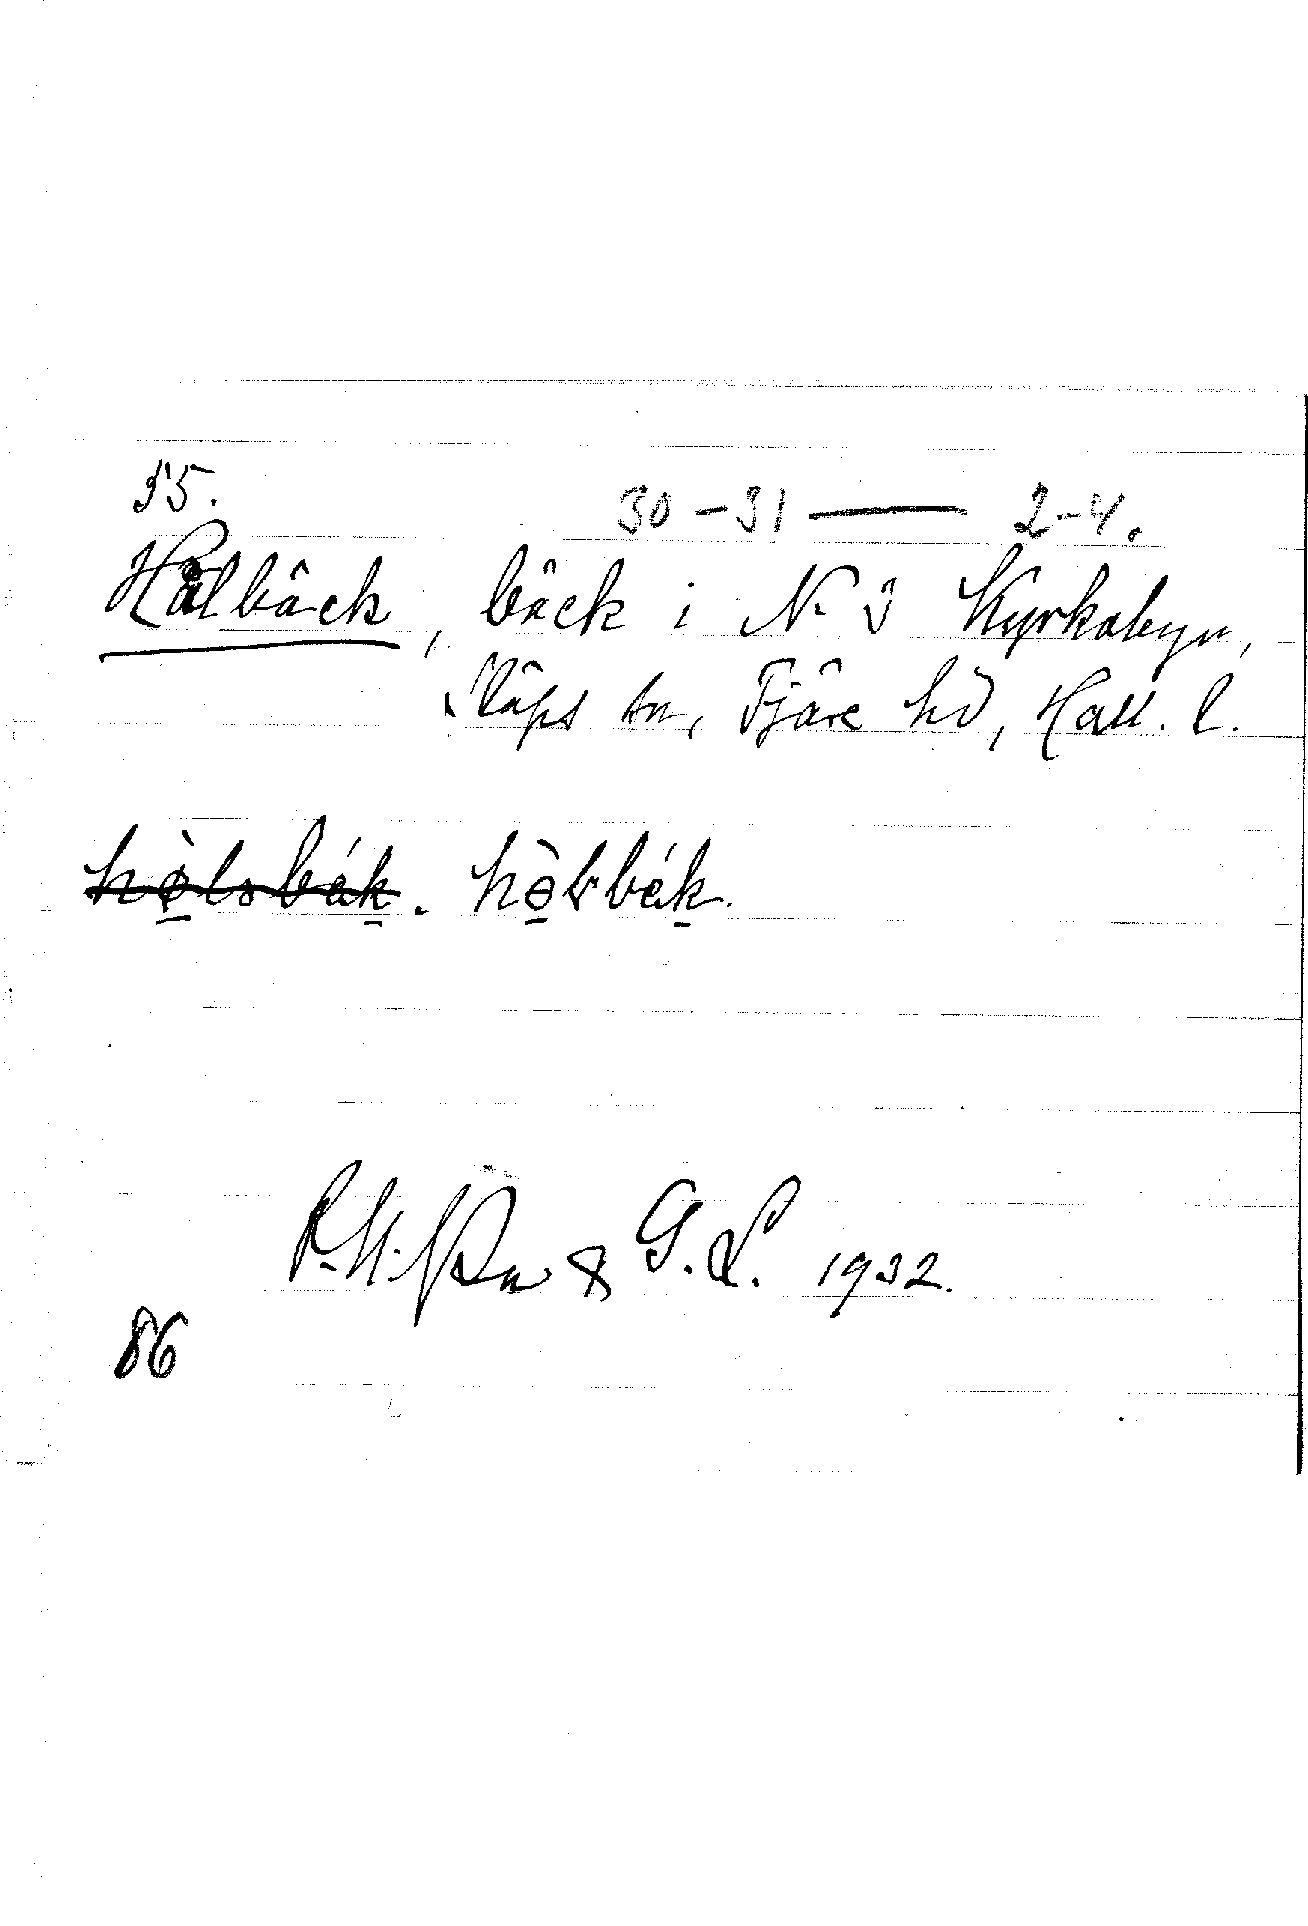 55.
30-31 — 2-4.
Hålbäck, bäck i N. 3 Kyrkobyn,
Släps sn, Fjäre hd, Hall. l.
hòlsbák. hòlsbák.
& G. L. 1932.
86